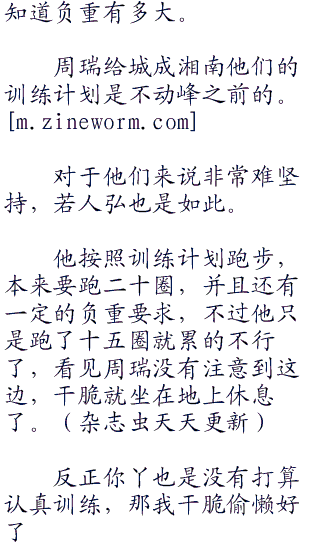 知道负重有多大。
周瑞给城成湘南他们的
训练计划是不动峰之前的。
[m.zineworm.com]
对于他们来说非常难坚
持，若人弘也是如此。
他按照训练计划跑步，
本来要跑二十圈，并且还有
一定的负重要求，不过他只
是跑了十五圈就累的不行
了，看见周瑞没有注意到这
边，干脆就坐在地上休息
了。（杂志虫天天更新）
反正你丫也是没有打算
认真训练，那我干脆偷懒好
了